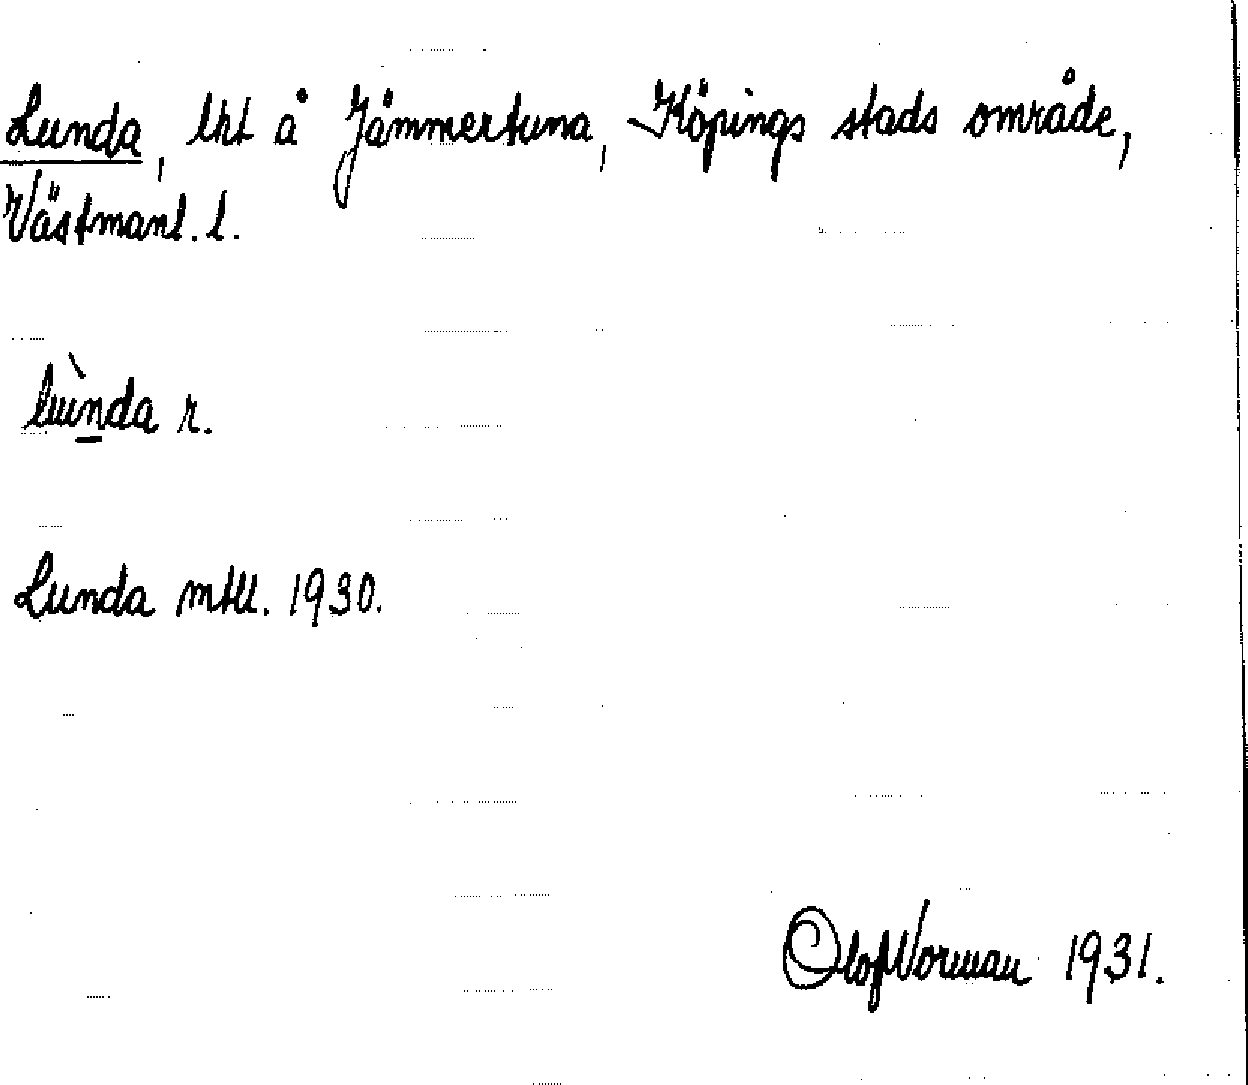 Lunda, lht å Jämmertuna, Köpings stads område,
Västmanl. l.
lùnda r.
Lunda mtll. 1930.
Olof Norman 1931.